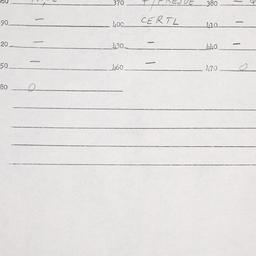 370 380
90 - 400 CERTL 410 -
20 - 430 - 440 -
50 - 460 - 470 0
80 0